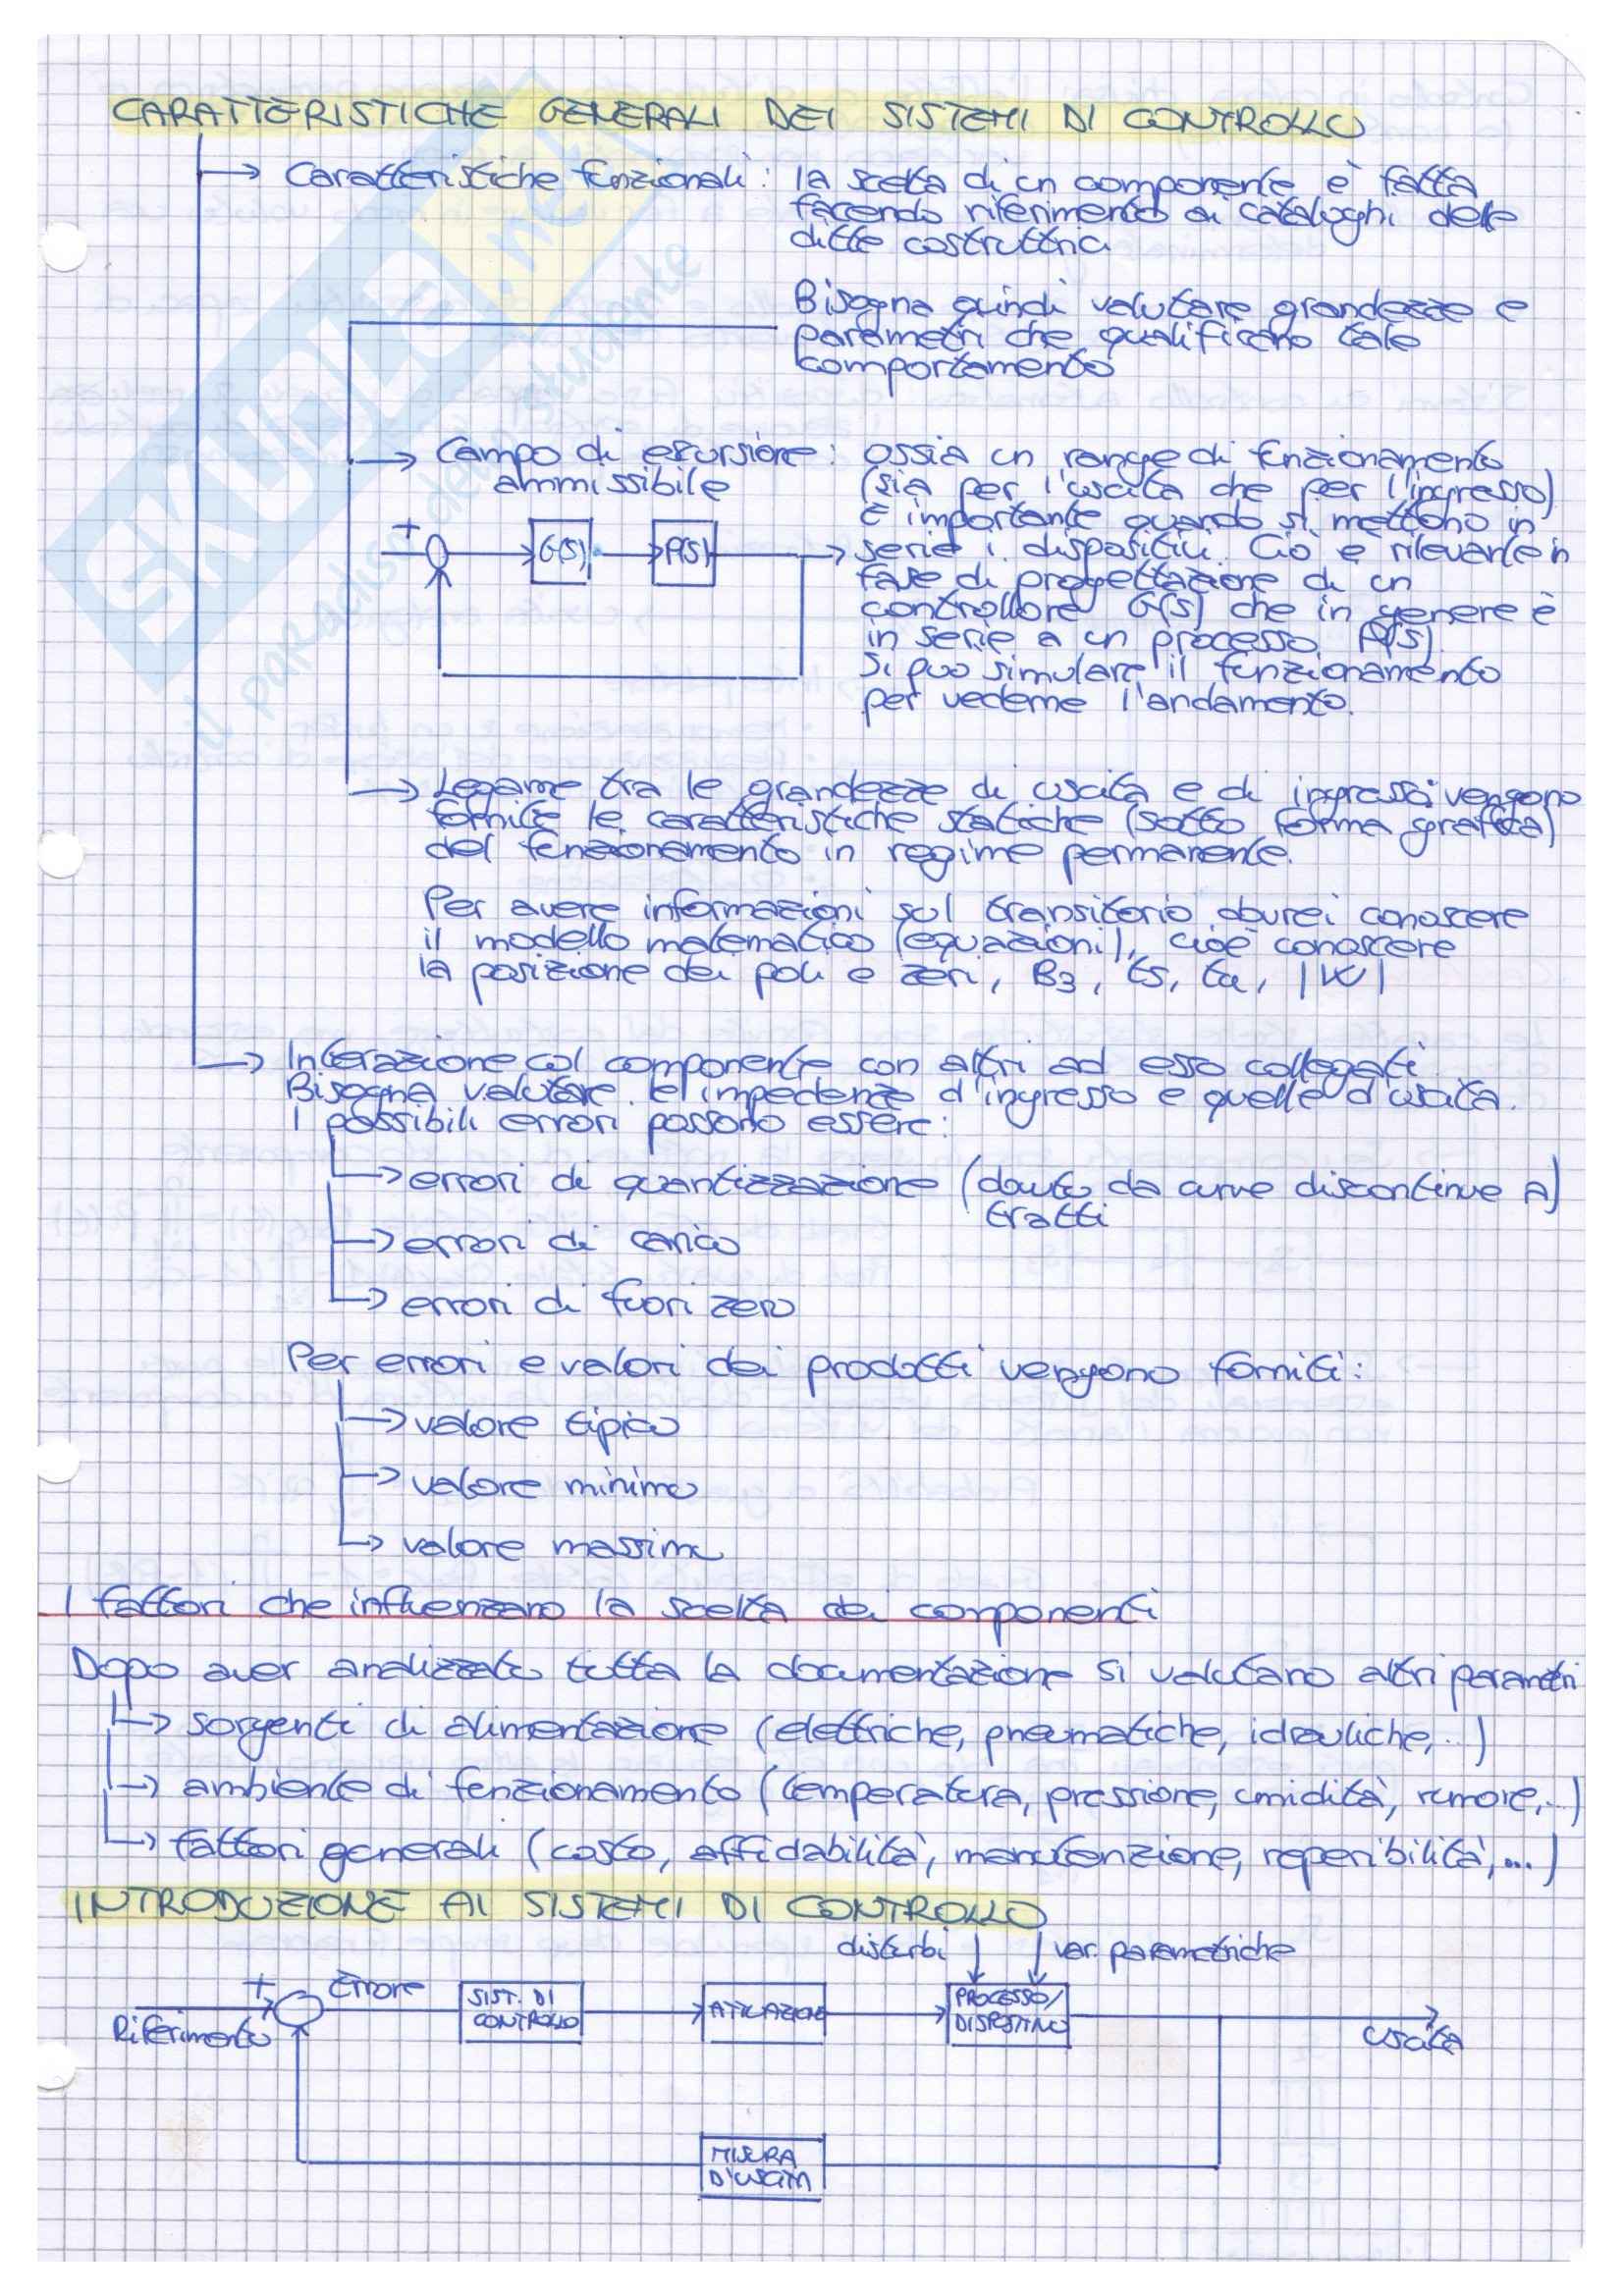 CARATTERISTICHE GENERALI DEI SISTEMI DI CONTROLLO
Caratteristiche funzionali: la scelta di un componente è fatta
facendo riferimento ai cataloghi delle
ditte costruttrici
Bisogna quindi valutare grandezze e
parametri che qualificano tale
comportamento
Campo di escursione: ossia un range di funzionamento
ammissibile (sia per l'uscita che per l'ingresso)
È importante quando si mettono in
+ G(s) P(s) serie i dispositivi. Ciò è rilevante in
fase di progettazione di un
controllore G(s) che in genere è
in serie a un processo P(s)
Si può simulare il funzionamento
per vederne l'andamento.
Legame tra le grandezze di uscita e di ingresso: vengono
fornite le caratteristiche statiche (sotto forma grafica)
del funzionamento in regime permanente.
Per avere informazioni sul transitorio dovrei conoscere
il modello matematico (equazioni), cioè conoscere
la posizione dei poli e zeri, B3, ts, ta, |W|
Interazione col componente con altri ad esso collegati
Bisogna valutare le impedenze d'ingresso e quelle d'uscita.
I possibili errori possono essere:
errori di quantizzazione (dovuto da curve discontinue a)
tratti
errori di carico
errori di fuori zero
Per errori e valori dei prodotti vengono forniti:
valore tipico
valore minimo
valore massimo
I fattori che influenzano la scelta dei componenti
Dopo aver analizzato tutta la documentazione si valutano altri parametri
sorgenti di alimentazione (elettriche, pneumatiche, idrauliche,...)
ambiente di funzionamento (temperatura, pressione, umidità, rumore,...)
fattori generali (costo, affidabilità, manutenzione, reperibilità,...)
INTRODUZIONE AI SISTEMI DI CONTROLLO
disturbi var. parametriche
+ Errore SIST. DI CONTROLLO ATTUAZIONE PROCESSO/ DISPOSITIVO
Riferimento uscita
MISURA
D'USCITA
SKUOLA.net
il paradiso dello studente